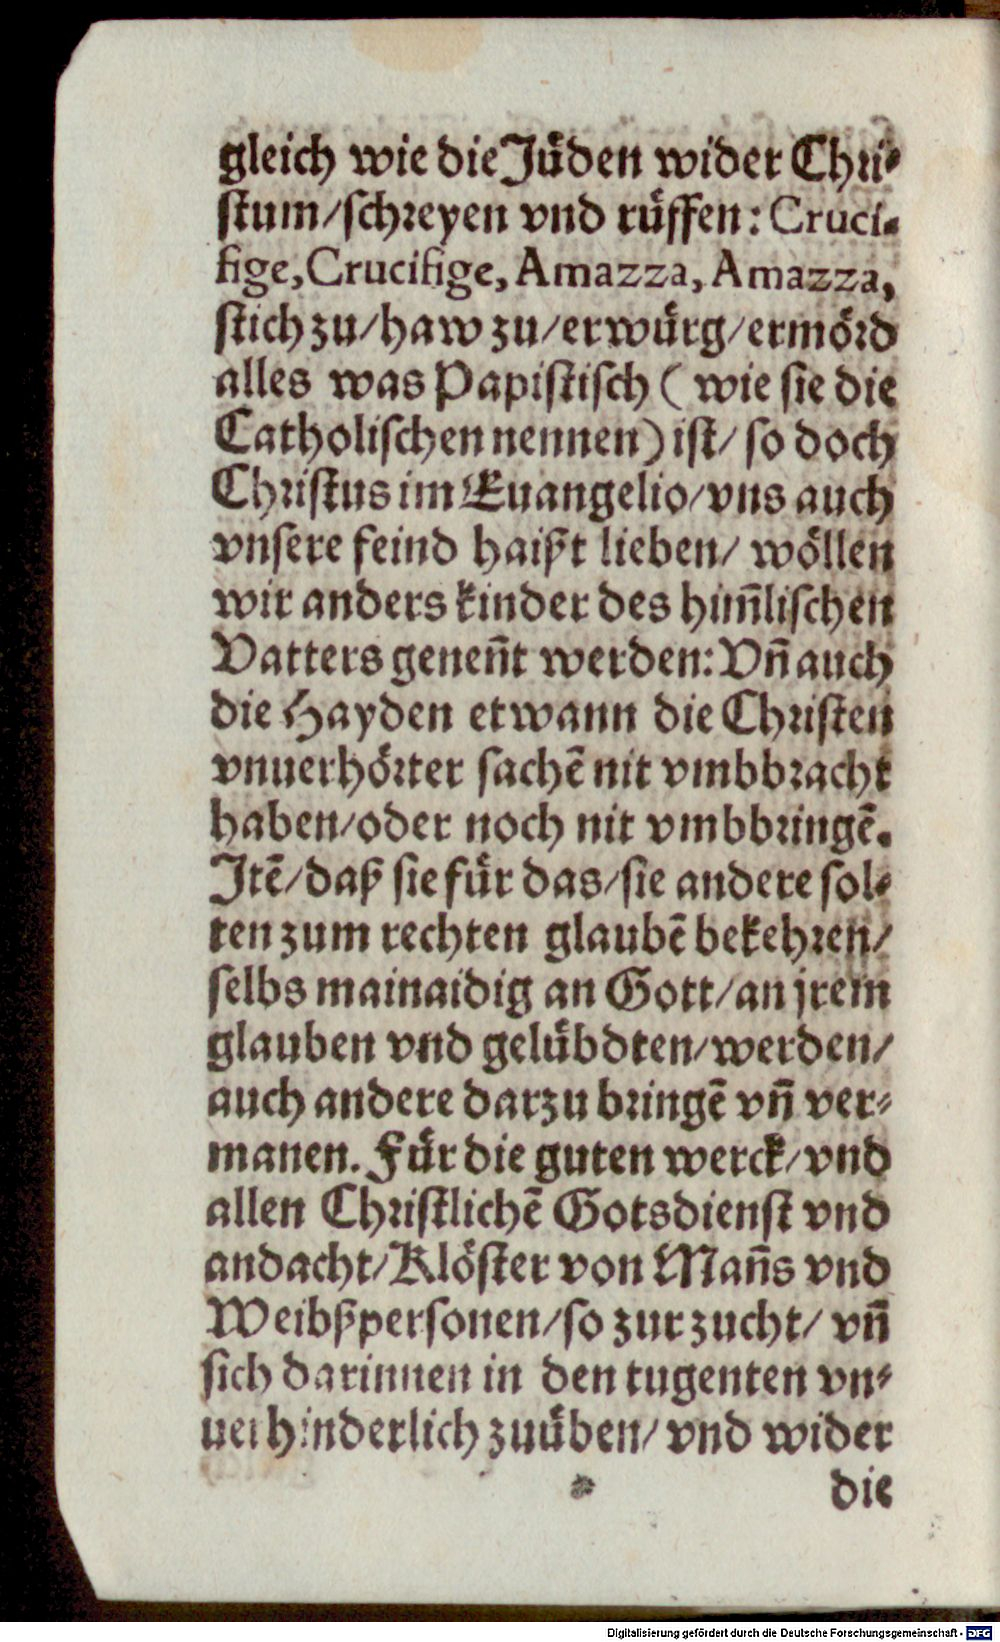 gleich wie die Jüden wider Chri-
stum/schreyen vnd rüffen: Cruci-
fige, Crucifige, Amazza, Amazza,
stich zu/haw zu/erwürg/ermörd
alles was Papistisch ( wie sie die
Catholischen nennen) ist/ so doch
Christus im Euangelio/vns auch
vnsere feind haißt lieben/ wöllen
wir anders kinder des him̃lischen
Vatters geneñt werden: Vñ auch
die Hayden etwann die Christen
vnuerhörter sachẽ nit vmbbracht
haben/oder noch nit vmbbringẽ.
Itẽ/daß sie für das/sie andere sol-
ten zum rechten glaubẽ bekehren/
selbs mainaidig an Gott/an jrem
glauben vnd gelübdten/werden/
auch andere darzu bringẽ vñ ver-
manen. Für die guten werck/vnd
allen Christlichẽ Gotsdienst vnd
andacht/Klöster von Mañs vnd
Weibßpersonen/so zur zucht/ vñ
sich darinnen in den tugenten vn-
uerhinderlich zuüben/ vnd wider
die
Digitalisierung gefördert durch die Deutsche Forschungsgemeinschaft - DFG